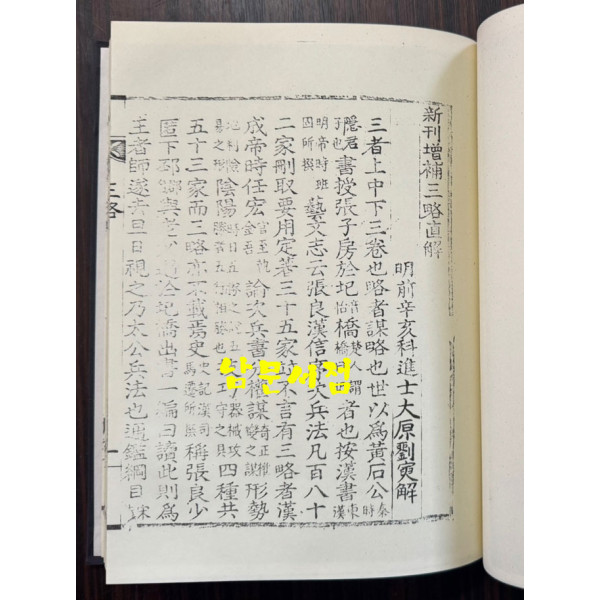 新刊增補三略直解
明前辛亥科進士太原劉寅解
三者上中下三卷也略者謀略也世以爲黃石公秦時
隱君子也書授張子房於圯音怡橋楚人謂橋曰圯者也按漢書東漢
明帝時班固所撰藝文志云張良漢信序次兵法凡百八十
二家刪取要用定著三十五家並不言有三略者漢
成帝時任宏官至執金吾論次兵書爲權謀奇正權變之說形勢
陰陽四種共
五十三家而三略亦不載焉史史記漢司馬遷所撰稱張良少
匿下邳出書一編曰讀此則爲
王者師遂去旦日視之乃太公兵法也通鑑綱目宋
三略
남문서점